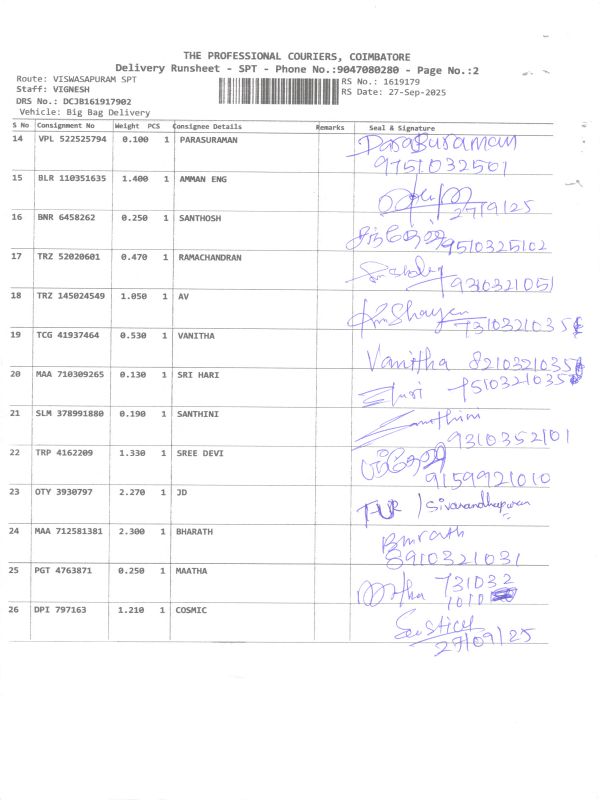 THE PROFESSIONAL COURIERS, COIMBATORE
Delivery Runsheet - SPT - Phone No.:9047080280 - Page No.:2
Route: VISWASAPURAM SPT RS No.: 1619179
Staff: VIGNESH RS Date: 27-Sep-2025
DRS No.: DCJB161917902
Vehicle: Big Bag Delivery
S No Consignment No Weight PCS Consignee Details Remarks Seal & Signature
14 VPL 522525794 0.100 1 PARASURAMAN Parasuraman
9751032501
15 BLR 110351635 1.400 1 AMMAN ENG
27/9/25
16 BNR 6458262 0.250 1 SANTHOSH 9510325102
17 TRZ 52020601 0.470 1 RAMACHANDRAN
9310321051
18 TRZ 145024549 1.050 1 AV
19 TCG 41937464 0.530 1 VANITHA Vanitha
20 MAA 710309265 0.130 1 SRI HARI
21 SLM 378991880 0.190 1 SANTHINI
9310352101
22 TRP 4162209 1.330 1 SREE DEVI
9159921010
23 OTY 3930797 2.270 1 JD
24 MAA 712581381 2.300 1 BHARATH
8910321031
25 PGT 4763871 0.250 1 MAATHA 731032
1010
26 DPI 797163 1.210 1 COSMIC
27/09/25